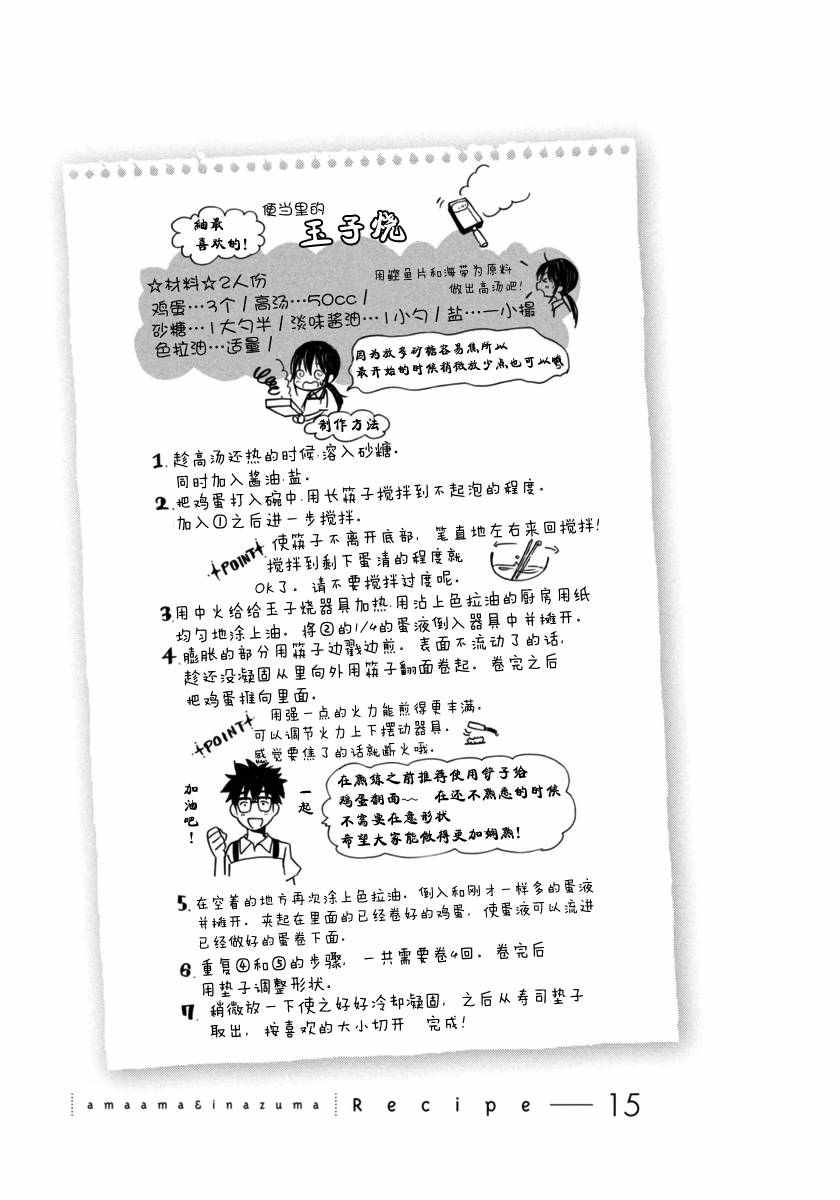 紬最
喜欢的!
便当里的
玉子烧
☆材料☆2人份
鸡蛋…3个/高汤…50cc/
砂糖…1大勺半/淡味酱油…1小勺/盐…一小撮
色拉油…适量/
用鲣鱼片和海带为原料
做出高汤吧!
因为放多砂糖容易焦所以
最开始的时候稍微放少点也可以哦
制作方法
1.趁高汤还热的时候.溶入砂糖.
同时加入酱油.盐.
2.把鸡蛋打入碗中.用长筷子搅拌到不起泡的程度.
加入①之后进一步搅拌.
POINT
使筷子不离开底部, 笔直地左右来回搅拌!
搅拌到剩下蛋清的程度就
OK了. 请不要搅拌过度呢.
3.用中火给给玉子烧器具加热.用沾上色拉油的厨房用纸
均匀地涂上油. 将②的1/4的蛋液倒入器具中并摊开.
4.膨胀的部分用筷子边戳边煎. 表面不流动了的话,
趁还没凝固从里向外用筷子翻面卷起. 卷完之后
把鸡蛋推向里面.
POINT
用强一点的火力能煎得更丰满.
可以调节火力上下摆动器具.
感觉要焦了的话就断火哦.
一起
加油吧!
在熟练之前推荐使用铲子给
鸡蛋翻面~~ 在还不熟悉的时候
不需要在意形状
希望大家能做得更加娴熟!
5.在空着的地方再次涂上色拉油. 倒入和刚才一样多的蛋液
并摊开. 夹起在里面的已经卷好的鸡蛋, 使蛋液可以流进
已经做好的蛋卷下面.
6.重复④和⑤的步骤, 一共需要卷4回. 卷完后
用垫子调整形状.
7.稍微放一下使之好好冷却凝固, 之后从寿司垫子
取出, 按喜欢的大小切开 完成!
amaama&inazuma Recipe — 15